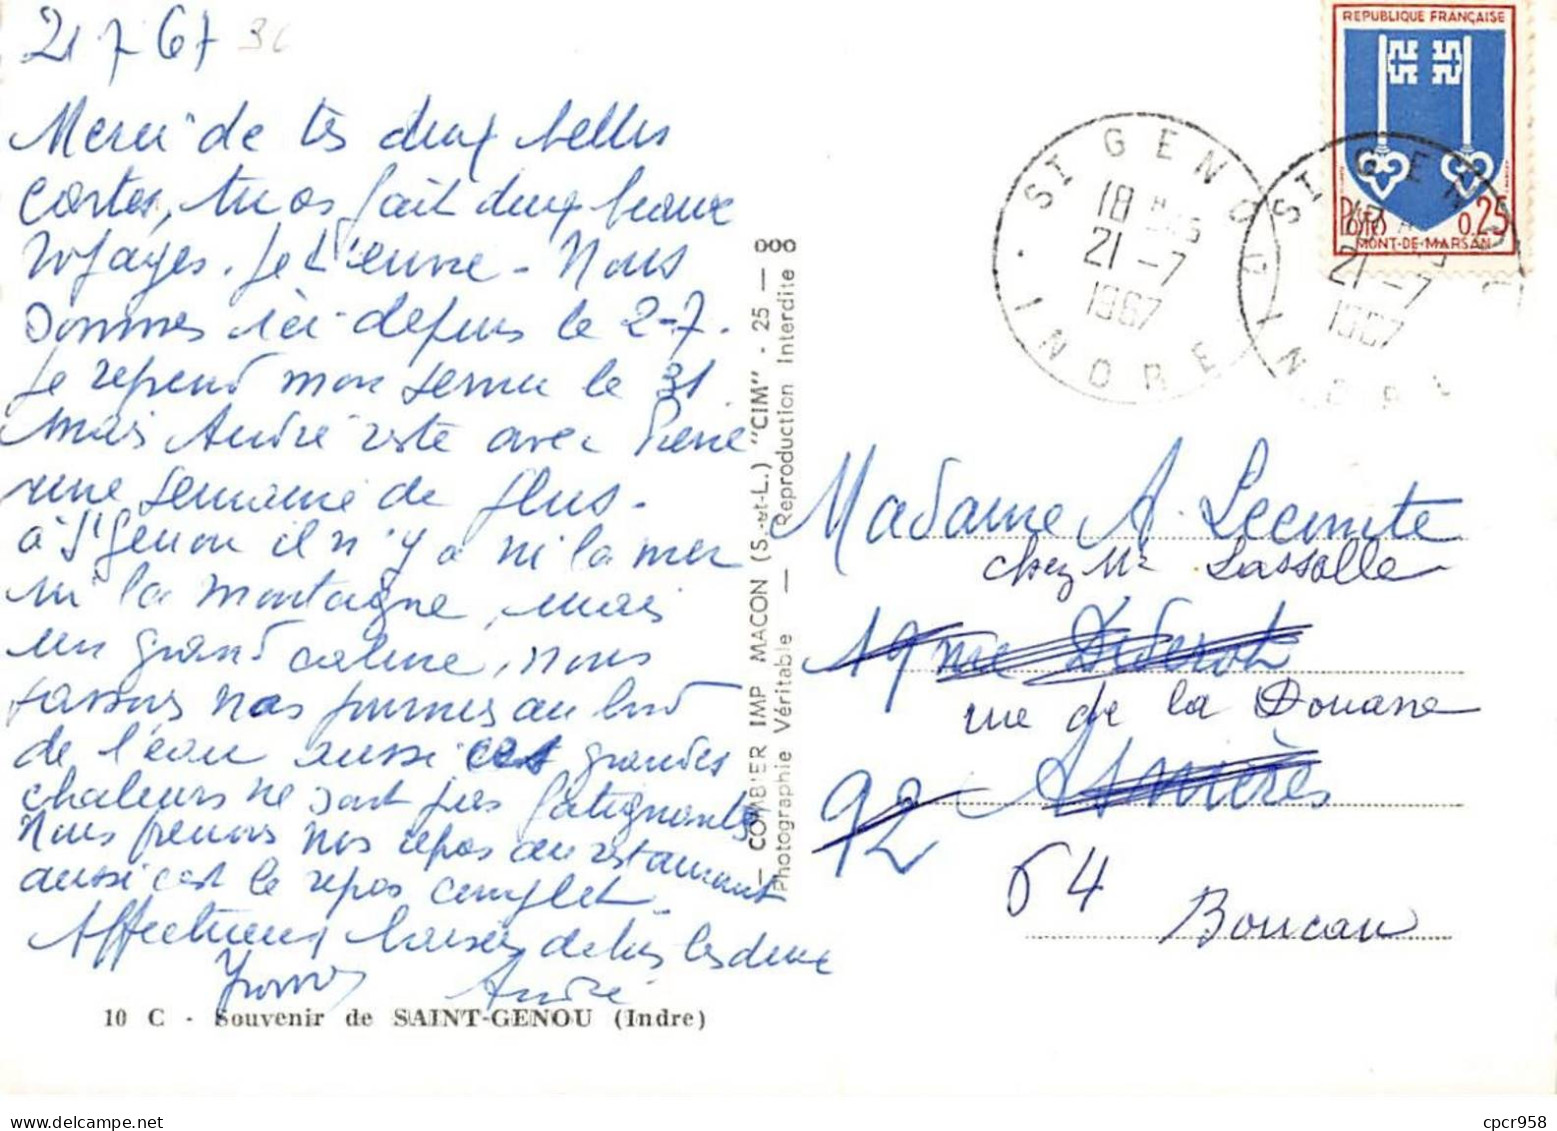 21 7 67
Merci de tes deux belles
cartes, tu as fait deux beaux
voyages. Je t'envie - Nous
sommes ici depuis le 2-7.
Je reprend mon service le 31
mais André reste avec Pierre
une semaine de plus.
à St Genou il n'y a ni la mer
ni la montagne, mais
un grand calme, nous
passons nos journées au bord
de l'eau aussi ces grandes
chaleurs ne sont pas fatigantes
Nous prenons nos repas au restaurant
aussi c'est le repos complet
Affectueux baisers de tous les deux
André
10 C - Souvenir de SAINT-GENOU (Indre)
— COMBIER IMP MACON (S.-et-L.) "CIM" - 25 —
Photographie Véritable — Reproduction Interdite
REPUBLIQUE FRANÇAISE
POSTES 0,25
MONT-DE-MARSAN
ST GENOU
18 H
21 -7
1967
INDRE
ST GENOU
21 -7
1967
INDRE
Madame A. Lecomte
chez Mr Lassalle
19 rue Diderot
rue de la Douane
92 Asnières
64
Boucau
cpcr958